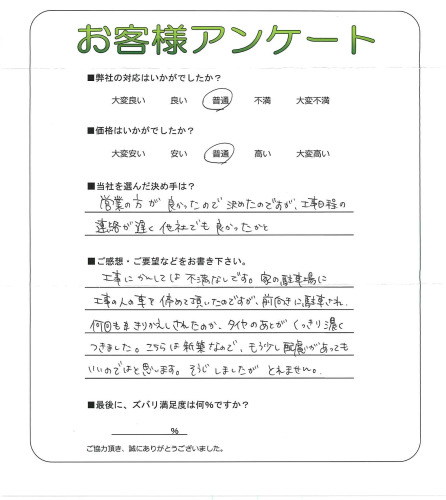 お客様アンケート
■弊社の対応はいかがでしたか？
大変良い 良い 普通 不満 大変不満
■価格はいかがでしたか？
大変安い 安い 普通 高い 大変高い
■当社を選んだ決め手は？
営業の方が良かったので決めたのですが、工事日程の
連絡が遅く他社でも良かったかと
■ご感想・ご要望などをお書き下さい。
工事にかんしては不満なしです。家の駐車場に
工事の人の車を停めて頂いたのですが、前向きに駐車され、
何回もきりかえしされたのか、タイヤのあとがくっきり濃く
つきました。こちらは新築なので、もう少し配慮があっても
いいのではと思います。そうじしましたがとれません。
■最後に、ズバリ満足度は何％ですか？
％
ご協力頂き、誠にありがとうございました。